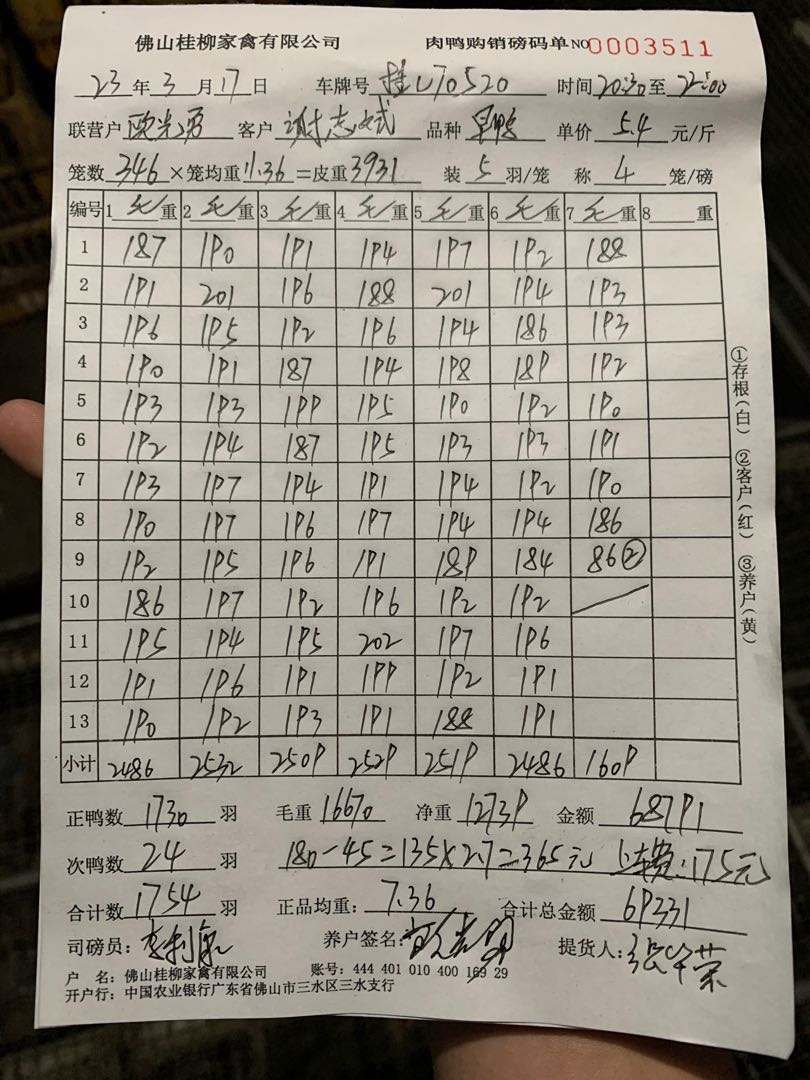 佛山桂柳家禽有限公司 肉鸭购销磅码单 NO 0003511
23 年 3 月 17 日 车牌号 桂U70520 时间 20:30 至 22:00
联营户 欧光勇 客户 谢志斌 品种 单价 5.4 元/斤
笼数 346 ×笼均重 11.36 =皮重 3931 装 5 羽/笼 称 4 笼/磅
编号 1 毛/重 2 毛/重 3 毛/重 4 毛/重 5 毛/重 6 毛/重 7 毛/重 8 重
1 187 190 191 194 197 192 188
2 191 201 196 188 201 194 193
3 196 195 192 196 194 186 193
4 190 191 187 194 198 189 192
5 193 193 199 195 190 192 190
6 192 194 187 195 193 193 191
7 193 197 194 191 194 192 190
8 190 197 196 197 194 194 186
9 192 195 196 191 189 184 86②
10 186 197 192 196 192 192
11 195 194 195 202 197 196
12 191 196 191 199 192 191
13 190 192 193 191 188 191
小计 2486 2532 2509 2529 2519 2486 1609
①存根(白) ②客户(红) ③养户(黄)
正鸭数 1730 羽 毛重 16670 净重 12739 金额 68791
次鸭数 24 羽 180-45=135×2.7=365元 上车费:175元
合计数 1754 羽 正品均重: 7.36 合计总金额 69331
司磅员: 养户签名: 提货人:
户 名: 佛山桂柳家禽有限公司 账号: 444 401 010 400 169 29
开户行: 中国农业银行广东省佛山市三水区三水支行